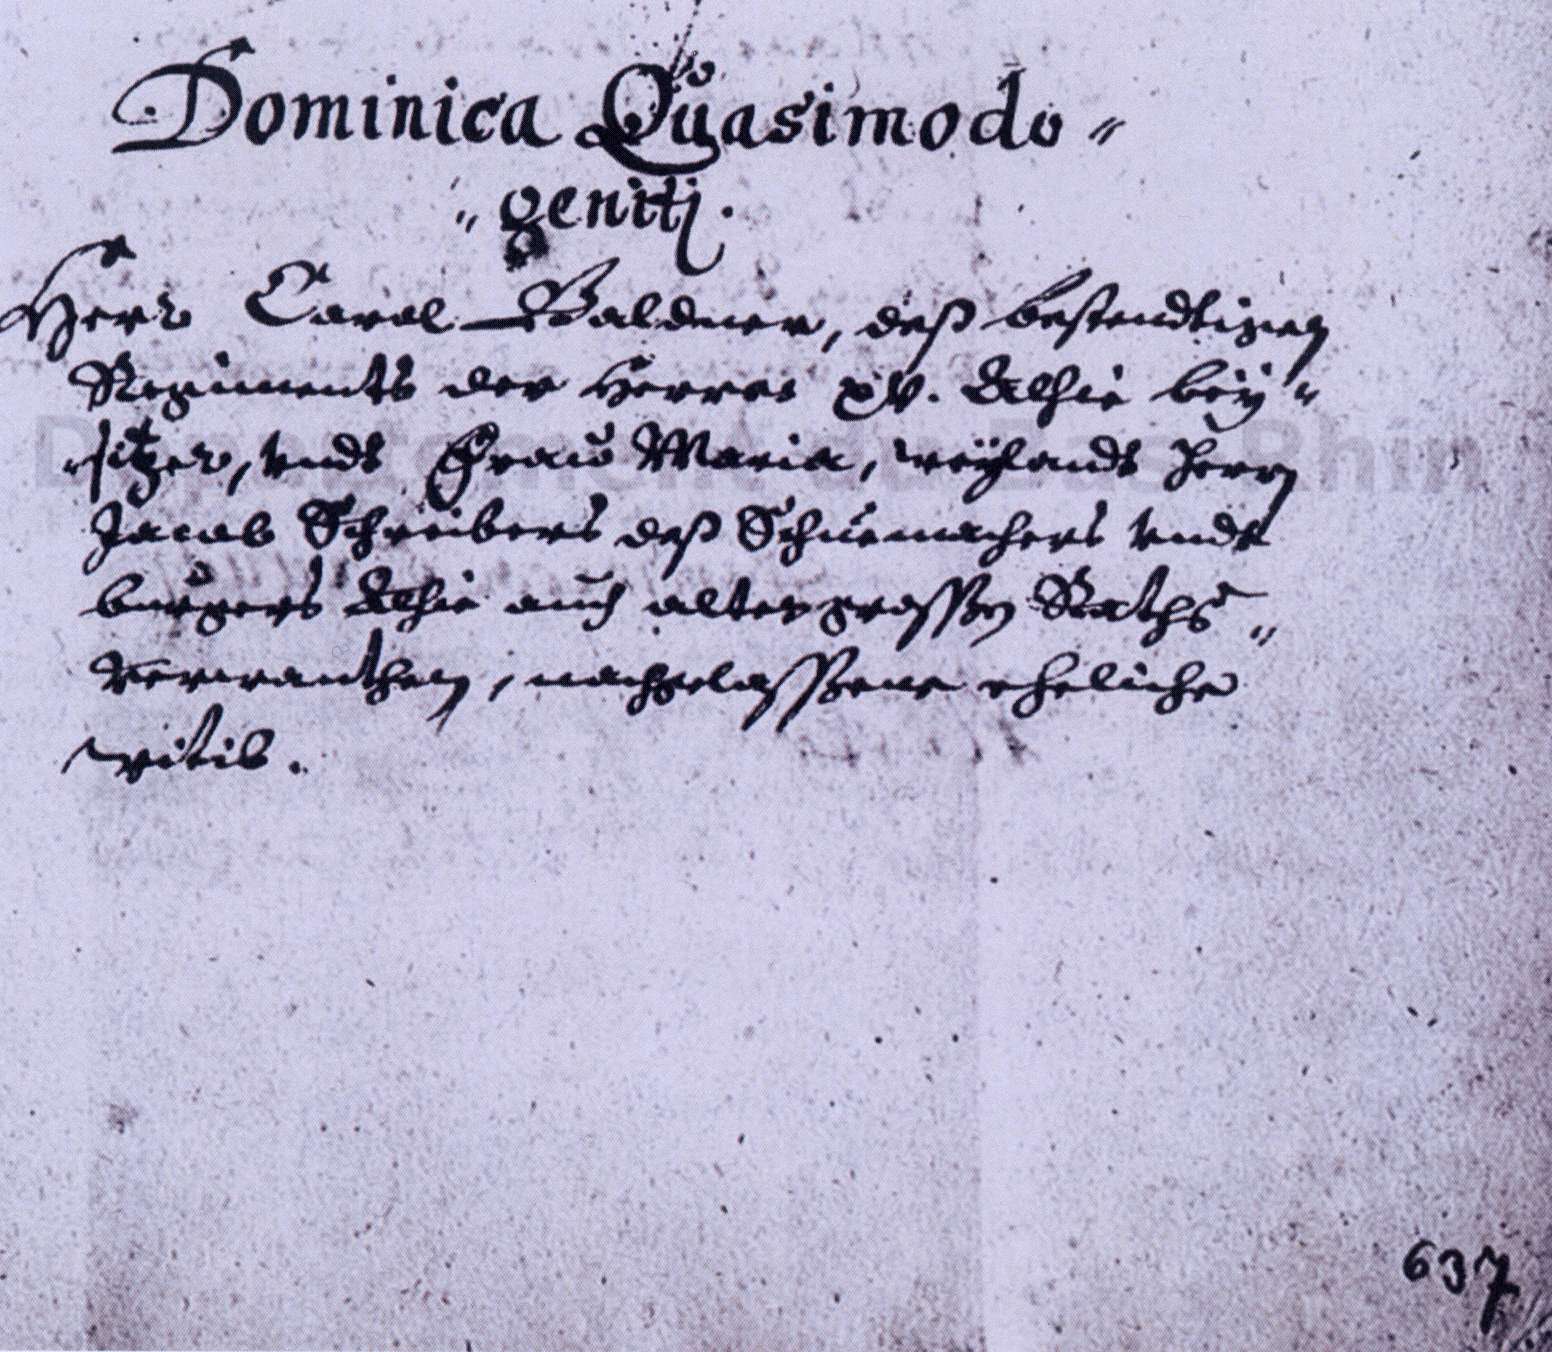 Dominica Quasimodo"
"geniti.
Herr Carol Baldner, deß bestendtigen
Regiments der Herren XV. Alhie bey"
sitzer, vndt Fraw Maria, weÿlandt Herrn
Jacob Schreibers deß Schuemachers vndt
burgers Alhie auch alten grossen Raths"
verwanthen, nachgelassene eheliche
witib.
Departement du Bas-Rhin
637